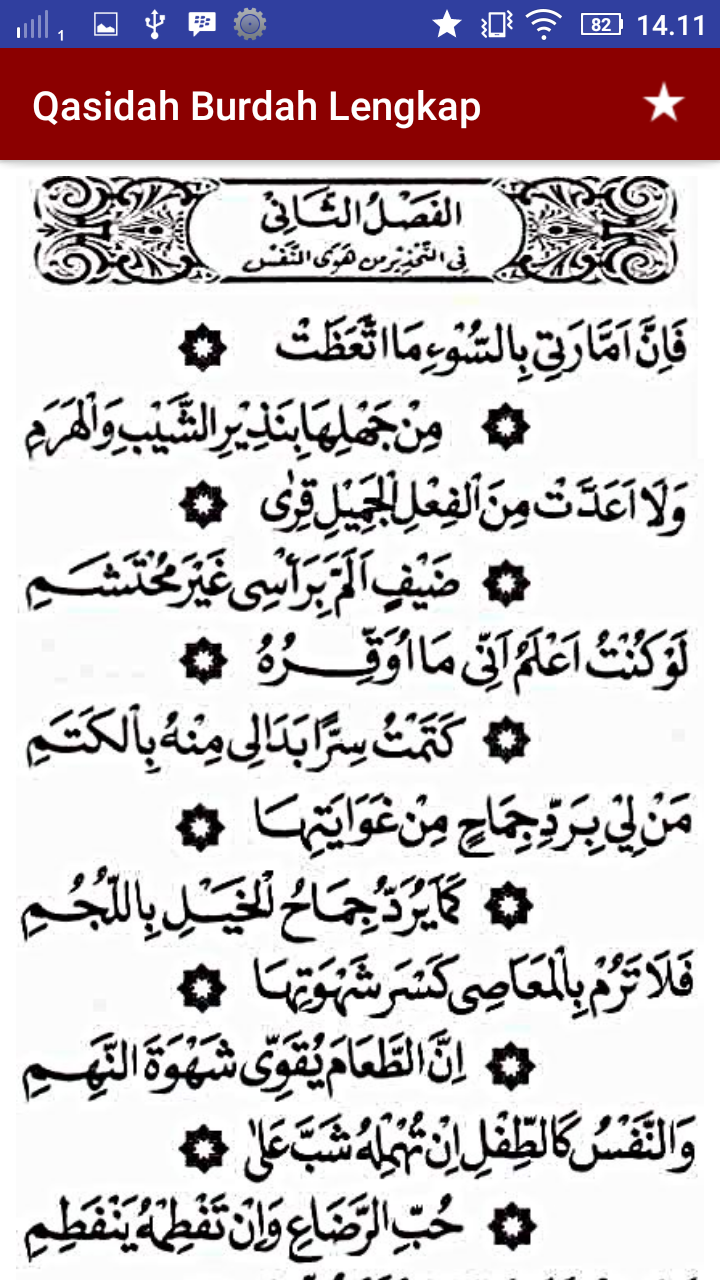 1 82 14.11
Qasidah Burdah Lengkap
الفَصْلُ الثَّانِى
فِى التَّحْذِيْرِ مِنْ هَوَى النَّفْسْ
فَاِنَّ اَمَّارَتِيْ بِالسُّوْءِ مَا اتَّعَظَتْ
مِنْ جَهْلِهَا بِنَذِيْرِ الشَّيْبِ وَالْهَرَمِ
وَلَا اَعَدَّتْ مِنَ الْفِعْلِ الْجَمِيْلِ قِرٰى
ضَيْفٍ اَلَمَّ بِرَأْسِى غَيْرَ مُحْتَشَمِ
لَوْ كُنْتُ اَعْلَمُ اَنِّى مَا اُوَقِّرُهُ
كَتَمْتُ سِرًّا بَدَالِى مِنْهُ بِالْكَتَمِ
مَنْ لِيْ بِرَدِّ جِمَاحٍ مِنْ غَوَايَتِهَا
كَمَا يُرَدُّ جِمَاحُ الْخَيْلِ بِاللُّجُمِ
فَلَا تَرُمْ بِالْمَعَاصِى كَسْرَ شَهْوَتِهَا
اِنَّ الطَّعَامَ يُقَوِّى شَهْوَةَ النَّهِمِ
وَالنَّفْسُ كَالطِّفْلِ اِنْ تُهْمِلْهُ شَبَّ عَلٰى
حُبِّ الرَّضَاعِ وَاِنْ تَفْطِمْهُ يَنْفَطِمِ